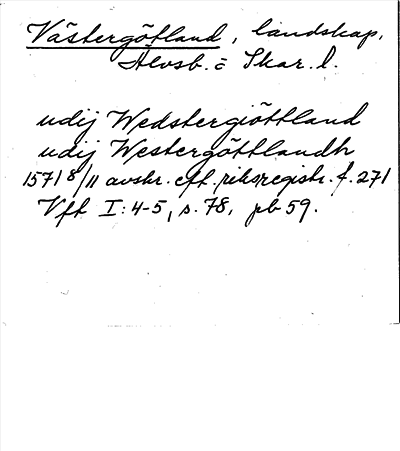 Västergötland, landskap,
Älvsb. o Skar. l.
udij Wedstergiöttland
udij Westergöttlandh
1571 8/11 avskr. eft. riksregistr. f. 271
Vft I:4-5, s. 78, pb 59.